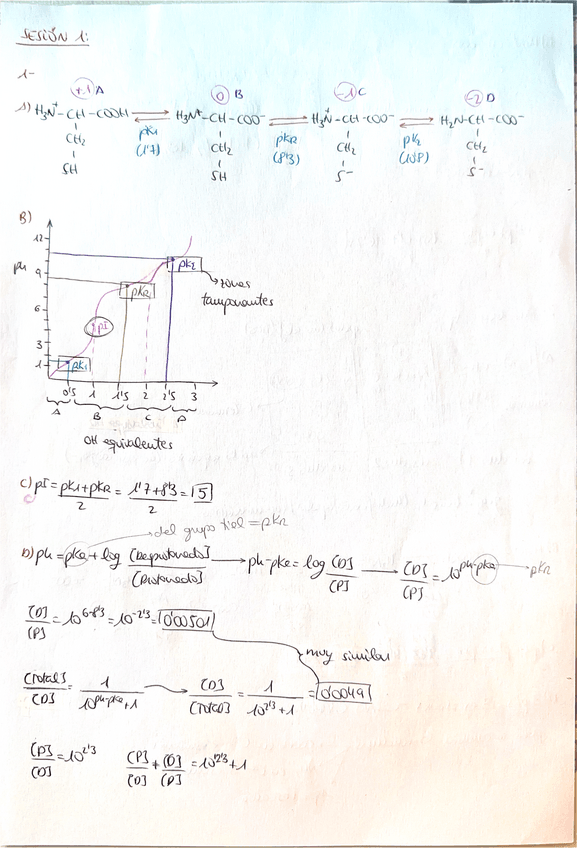 SESIÓN 1:
1-
+1 A 0 B -1 C -2 D
A) H₃N⁺-CH-COOH ⇌ H₃N⁺-CH-COO⁻ ⇌ H₃N⁺-CH-COO⁻ ⇌ H₂N-CH-COO⁻
pK1 pKR pK2
CH₂ CH₂ CH₂ CH₂
(1'7) (8'3) (10'8)
SH SH S⁻ S⁻
B)
12
pH 9
6
3
1
pK2
pKR
pI
pK1
zonas
tamponantes
0'5 1 1'5 2 2'5 3
A B C D
OH equivalentes
C) pI = pK1+pKR / 2 = 1'7+8'3 / 2 = 5
del grupo tiol = pKR
D) ph = pKa + log [Desprotonado] / [Protonado] → ph-pKa = log [D] / [P] → [D] / [P] = 10^ph-pKa → pKR
[D] / [P] = 10^6-8'3 = 10^-2'3 = 0'00501
muy similar
[Total] / [D] = 1 / 10^ph-pKa + 1 → [D] / [Total] = 1 / 10^2'3 + 1 = 0'0049
[P] / [D] = 10^2'3 [P] / [D] + [D] / [P] = 10^2'3 + 1